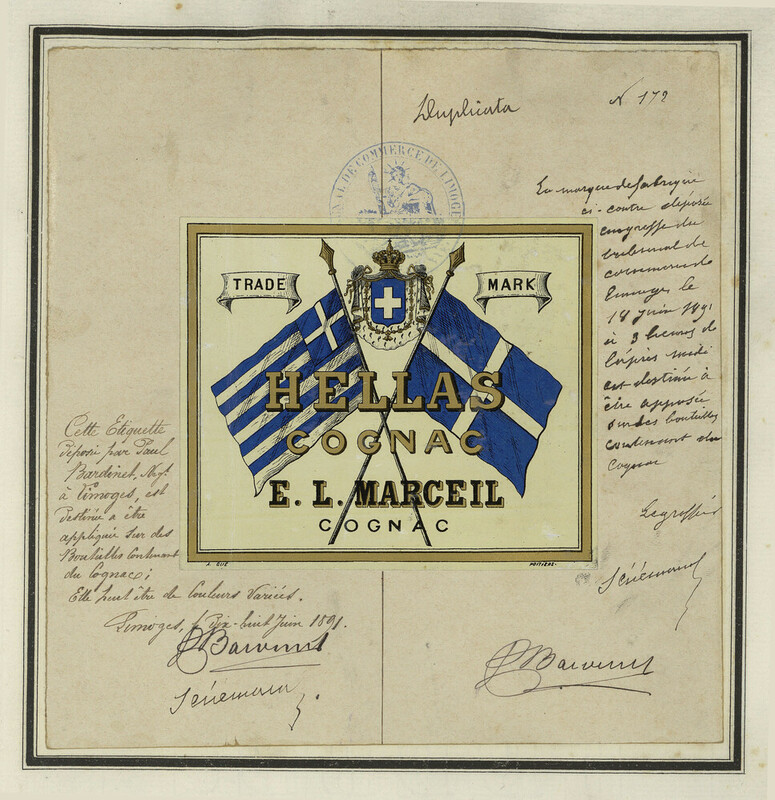 Duplicata
N 172
TRIBUNAL DE COMMERCE DE LIMOGES
La marque de fabrique
ci-contre déposée
au greffe du
tribunal de
commerce de
Limoges le
18 Juin 1891
à 3 heures de
l'après midi
est destinée à
être apposée
sur des bouteilles
contenant du
Cognac
Le greffier
TRADE
MARK
HELLAS
COGNAC
E. L. MARCEIL
COGNAC
POITIERS.
Cette Etiquette
déposée par Paul
Bardinet, Negt
à Limoges, est
destinée a être
appliquée sur des
Bouteilles contenant
du Cognac;
Elle peut être de Couleurs Variées.
Limoges, le Dix-huit Juin 1891.
P Bardinet
P Bardinet